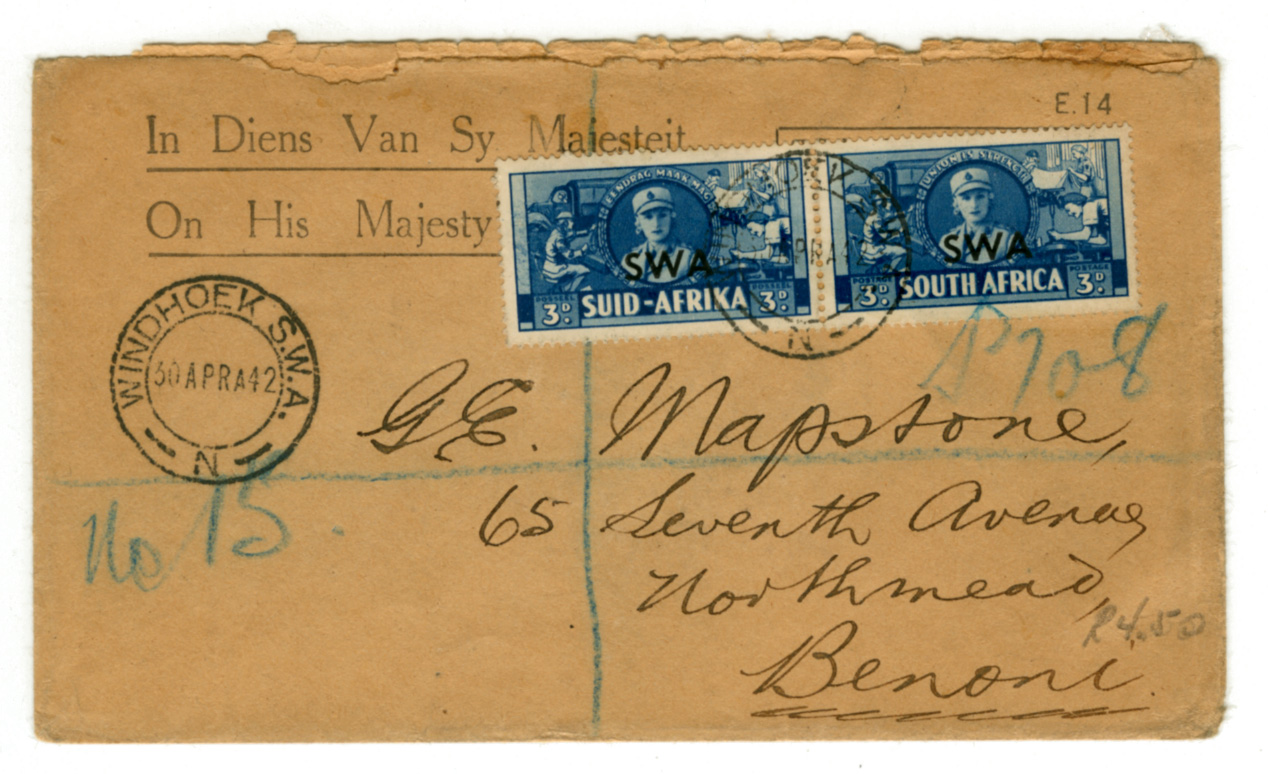 E.14
In Diens Van Sy Majesteit
On His Majesty
EENDRAG MAAK MAG
SWA
POSSEËL POSSEËL
3D. SUID-AFRIKA 3D.
UNION IS STRENGTH
SWA
POSTAGE POSTAGE
3D. SOUTH AFRICA 3D.
APRA42
N
WINDHOEK S.W.A.
30APRA42
N
708
G.E. Mapstone,
No 15.
65 Seventh Avenue
Northmead,
R4.50
Benoni.